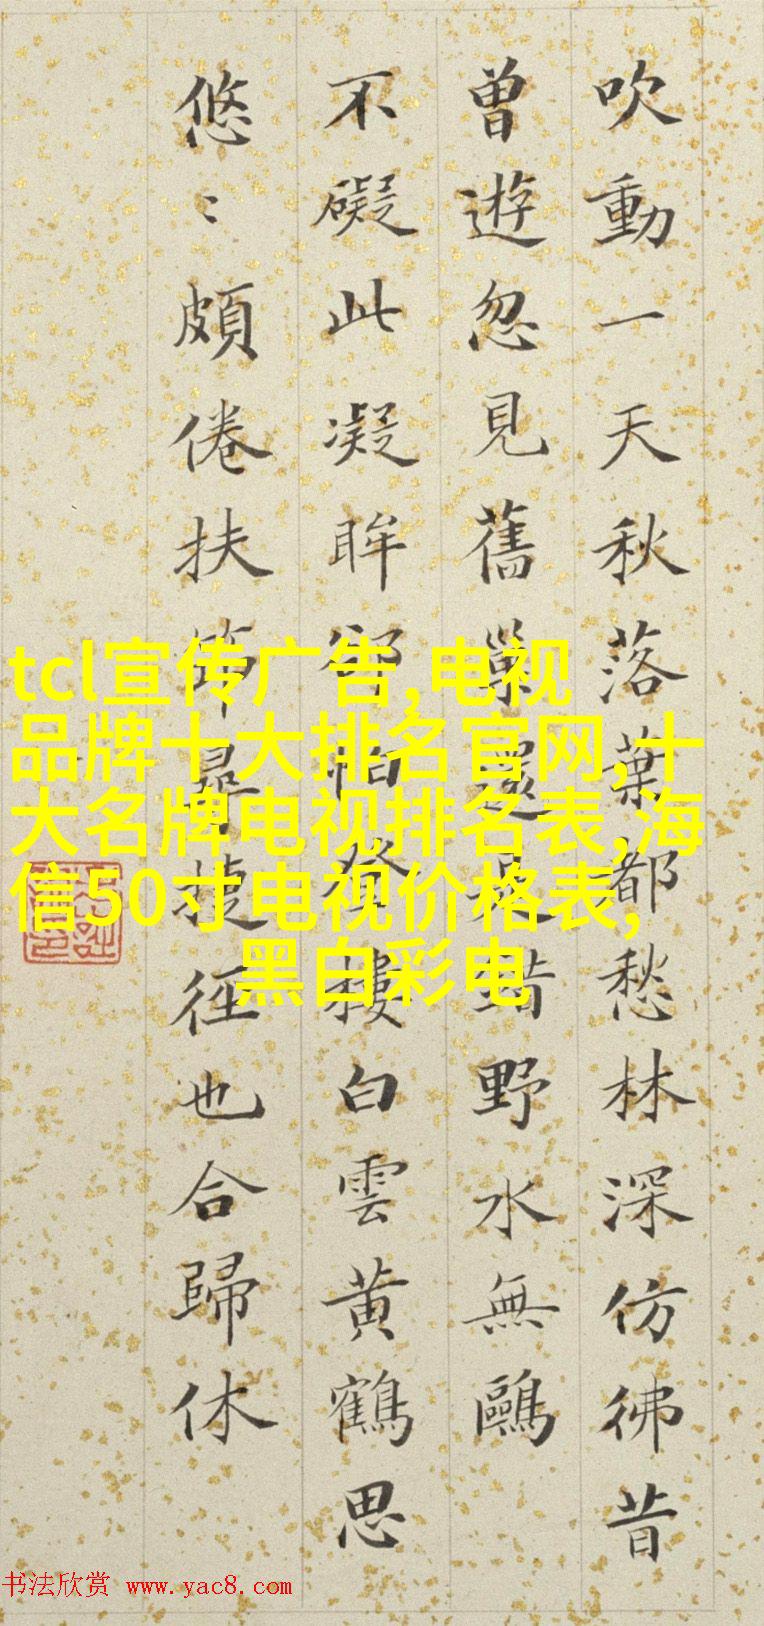 吹動一天秋落葉都愁林深仿彿昔
曾遊忽見舊巢還是錯野水無鷗
不礙此凝眸卻怕登樓白雲黃鶴思
悠〻頗倦扶筇尋捷徑也合歸休
tcl宣传广告,电视
品牌十大排名官网,十
大名牌电视排名表,海
信50寸电视价格表,
黑白彩电
书法欣赏 www.yac8.com